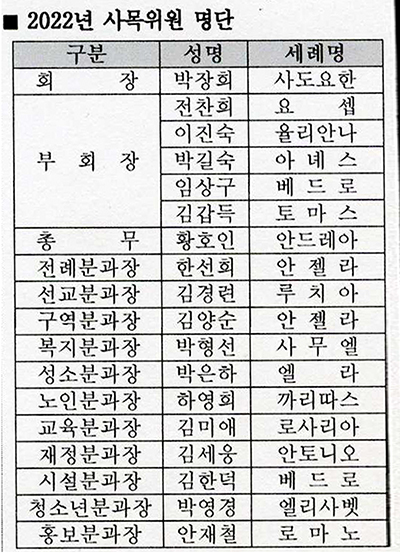 ■ 2022년 사목위원 명단
구분 성명 세례명
회 장 박장희 사도요한
전찬희 요 셉
이진숙 율리안나
부 회 장 박길숙 아 녜 스
임상구 베 드 로
김갑득 토 마 스
총 무 황호인 안드레아
전례분과장 한선희 안 젤 라
선교분과장 김경련 루 치 아
구역분과장 김양순 안 젤 라
복지분과장 박형선 사 무 엘
성소분과장 박은하 엘 라
노인분과장 하영희 까리따스
교육분과장 김미애 로사리아
재정분과장 김세웅 안토니오
시설분과장 김한덕 베 드 로
청소년분과장 박영경 엘리사벳
홍보분과장 안재철 로 마 노